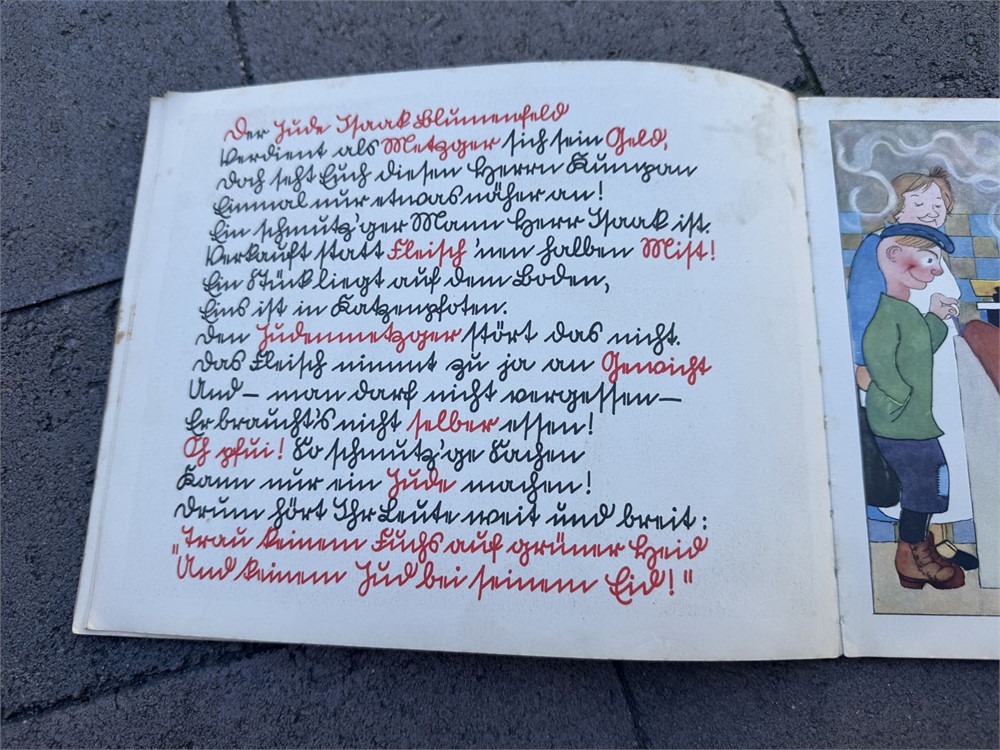 Der Jude Isaak Blumenfeld
Verdient als Metzger sich sein Geld,
Doch seht Euch diesen Herrn Kumpan
Einmal nur etwas näher an!
Ein schmutz'ger Mann Herr Isaak ist.
Verkauft statt Fleisch 'nen halben Mist!
Ein Stück liegt auf dem Boden,
Eins ist in Katzenpfoten.
Den Judenmetzger stört das nicht.
Das Fleisch nimmt zu ja an Gewicht
Und – man darf nicht vergessen –
Er braucht's nicht selber essen!
Oh pfui! So schmutz'ge Sachen
Kann nur ein Jude machen!
Drum hört Ihr Leute weit und breit:
"Trau keinem Fuchs auf grüner Heid
Und keinem Jud bei seinem Eid!"